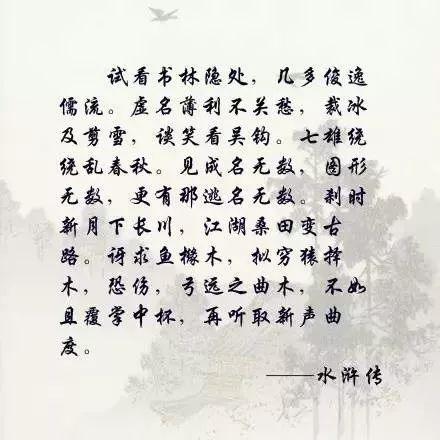 试看书林隐处，几多俊逸
儒流。虚名薄利不关愁，裁冰
及剪雪，谈笑看吴钩。七雄绕
绕乱春秋。见成名无数，图形
无数，更有那逃名无数。刹时
新月下长川，江湖桑田变古
路。讶求鱼橼木，拟穷猿择
木，恐伤，弓远之曲木，不如
且覆掌中杯，再听取新声曲
度。
——水浒传